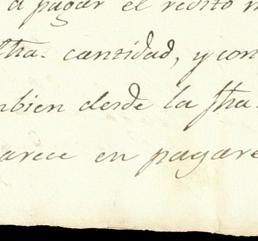 a pagar el redito
fha. cantidad, y con
mbien desde la fha.
arece en pagare